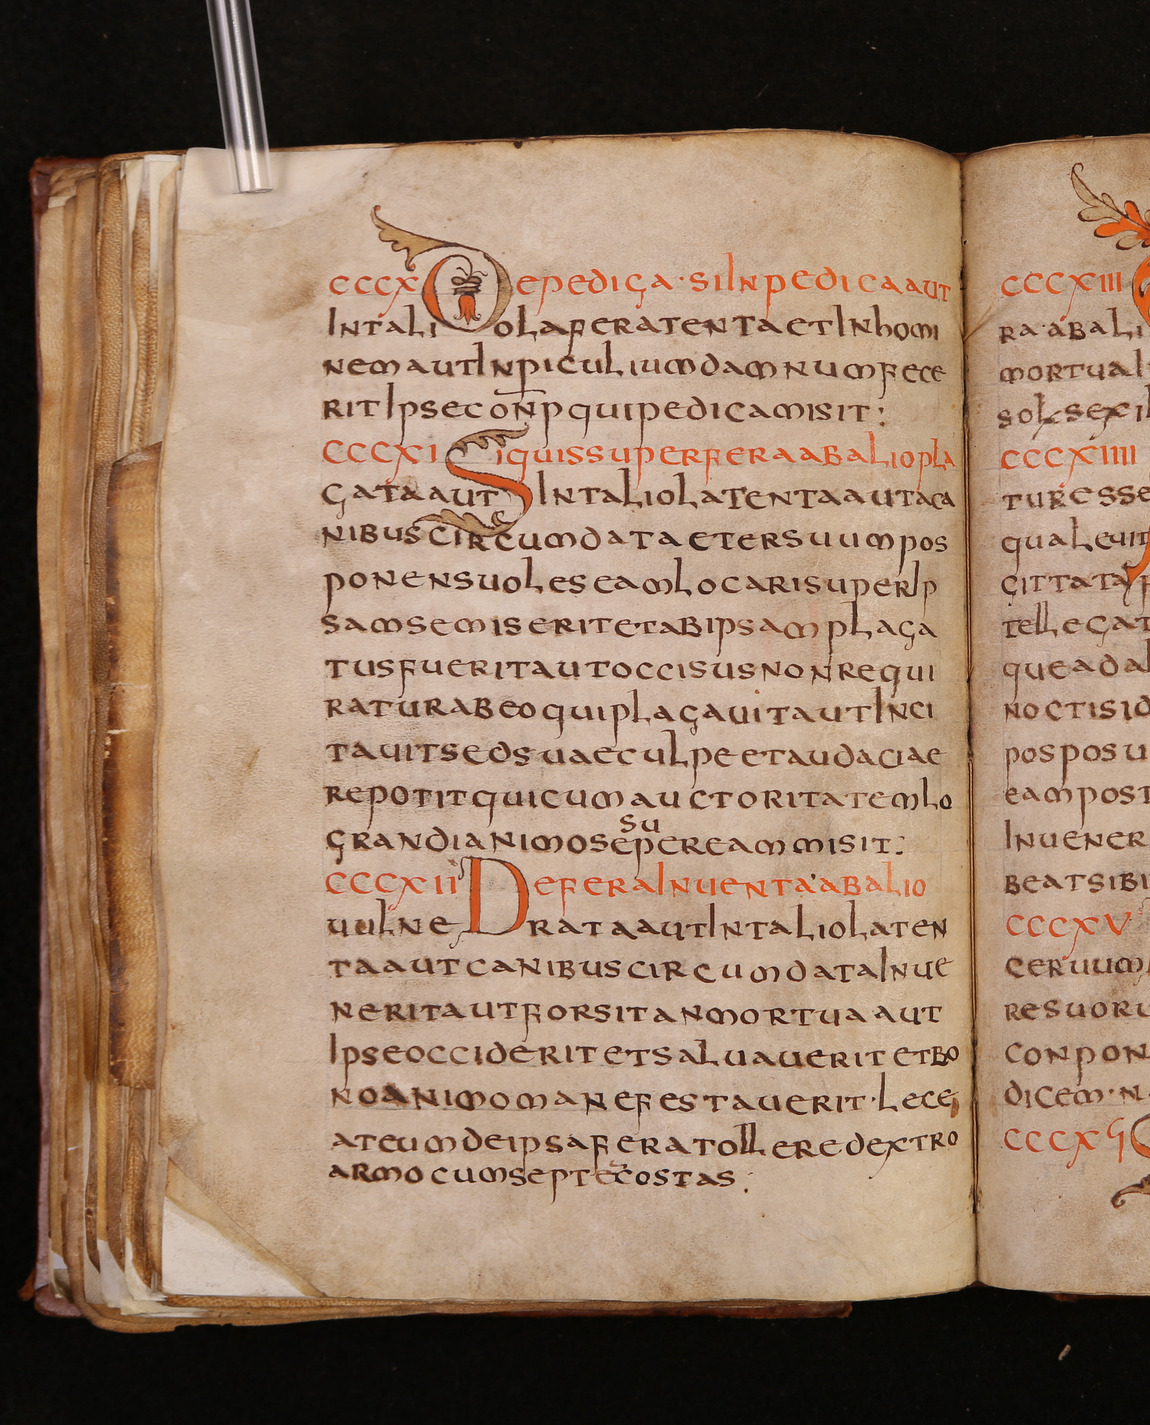 CCCX De pediga · si in pedica aut
in tali ola fera tenta et in homi
nem aut in piculiium damnum fece
rit ipse con̄p qui pedica misit :
CCCXI Siquis super fera ab alio pla
gata aut in taliola tenta aut a ca
nibus circumdata et er suum pos
ponens uoles eam locari super ip
sam se miserit et ab ipsam plaga
tus fuerit aut occisus non requi
ratur ab eo qui plagauit aut inci
tauit sed suae culpe et audaciae
repotit qui cum auctoritatem lo
grandi animo se super eam misit :
CCCXII De fera inuenta · ab alio
uulnerata aut in taliola ten
ta aut canibus circumdata inue
nerit aut forsitan mortua aut
ipse occiderit et saluauerit et bo
no animo manefestauerit · lece
at eum de ipsa fera tollere dextro
armo cum septe costas :
CCCXIII
ra · ab ali
mortua i
sol sex i
CCCXIIII
tur esse
qua leuit
cittata
tellegat
que ad al
noctis id
pospos u
eam post
inuener
beat sibi
CCCXV
ceruum
res uoru
conpon
dicem · n
CCCXϚ